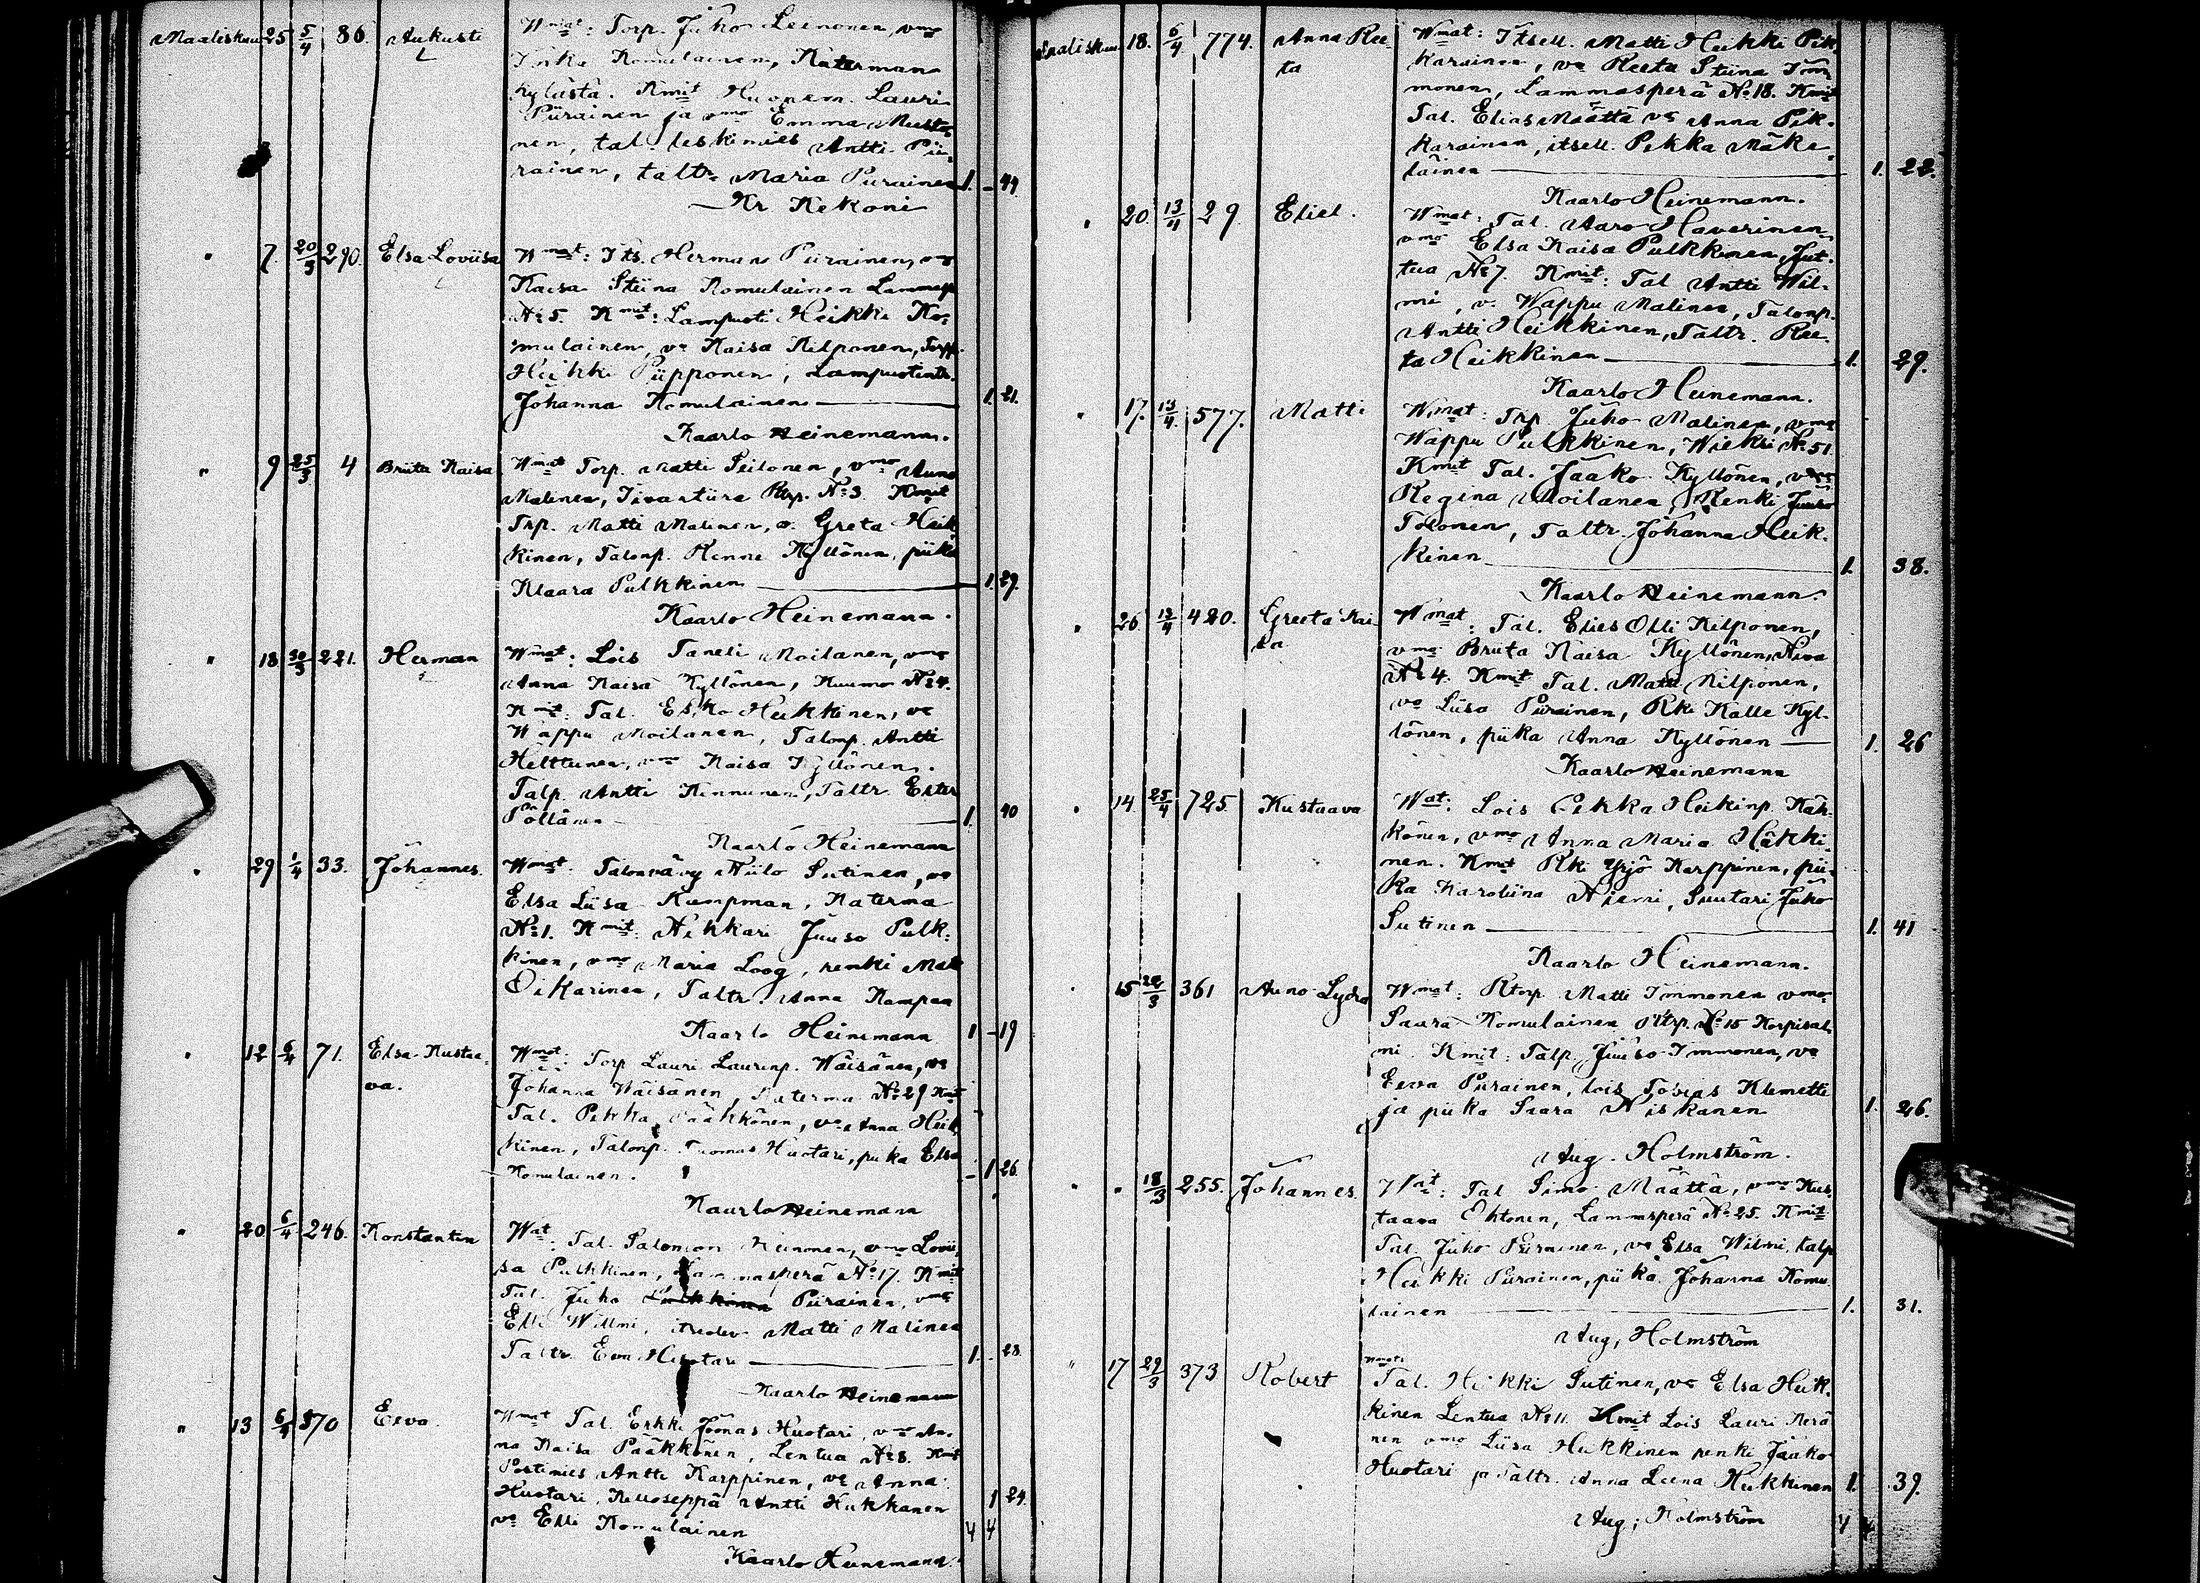 Maaliskuu 25 5/4 86. Aukusti Wmat: Torp. Juho Leinonen, vmo
Komulainen, Katerman
kylästä. Kmit Huonem. Lauri
Piirainen ja vmo Emma Musto-
nen, tal. leskimies Antti Pii-
rainen, taltr Maria Piirainen 1. 44
Kr Kekoni
" 7. 20/3 290. Elsa Loviisa Wmat: Its. Herman Piirainen, vo
Kaisa Stiina Komulainen Lammasp
No 5. Kmit: Lampuoti Heikki Ko-
mulainen, vo Kaisa Kilponen, Torp.
Heikki Piipponen, Lampuotintr.
Johanna Komulainen 1. 21.
Kaarlo Heinemann.
" 9 25/3 4 Briita Kaisa Wmat Torp. Matti Seilonen, vmo Auno
Malinen, Tivartiira Rtrp. No 3. Kmit
Trp. Matti Malinen, v. Greta Heik-
kinen, Talonp. Renne Kyllönen, piika
Klaara Pulkkinen 1. 29.
Kaarlo Heinemann.
" 18 30/3 221. Herman Wmat: Lois Taneli Moilanen, vmo
Anna Kaisa Kyllönen, Kuumo No 4.
Kmit: Tal. Esko Heikkinen, vo
Wappu Moilanen, Talonp. Antti
Helttunen, vmo Kaisa Kyllönen.
Talp. Antti Kinnunen, Taltr. Ester
Pöllänen 1. 40
Kaarlo Heinemann
" 29 1/4 33. Johannes. Wmat. Talonvävy Niilo Sutinen, vo
Elsa Liisa Kampman, Katerma
No 1. Kmit: Nikkari Juuso Pulk-
kinen, vmo Maria Loog, renki Matti
Oikarinen, Taltr. Anna Kampan 1 19
Kaarlo Heinemann
" 12 6/4 71. Elsa Kustaa- Wmat: Torp Lauri Laurinp. Wäisänen, vo
va. Johanna Wäisänen, Katerma No 29 Kmit
Tal. Pekka Pääkkönen, vo Anna Heik-
kinen, Talonp. Tuomas Huotari, piika Elsa
Komulainen. 1 26.
Kaarlo Heinemann
" 20 6/4 246. Konstantin Wat: Tal. Salomon Keinonen, vmo Lovii-
sa Pulkkinen, Lammasperä No 17. Kmit
Tal. Juho Piirainen, vmo
Elli Wilmi, Matti Malinen
Taltr. Eeva Huotari 1. 28.
Kaarlo Heinemann
" 13 6/4 570 Eeva. Wmat Tal. Erkki Joonas Huotari, vmo An-
na Kaisa Pääkkönen, Lentua No 8. Kmit
Postimies Antti Karppinen, vo Anna
Huotari, Kelloseppä Antti Hukkanen 1 24.
vo Elli Komulainen 4 4
Kaarlo Heinemann.
Maaliskuu 18. 6/4 774. Anna Ree- Wmat: Itsell. Matti Heikki Pik-
ta karainen, vo Reeta Stiina Im-
monen, Lammasperä No 18. Kmit
Tal. Elias Määttä vo Anna Pik-
karainen, itsell. Pekka Mäke-
läinen 1. 22.
Kaarlo Heinemann.
" 20 13/4 29 Eliel. Wmat: Tal. Aaro Haverinen,
vmo Elsa Kaisa Pulkkinen, Jut-
tua No 7. Kmit: Tal Antti Wil-
mi, v. Wappu Malinen, Talonp.
Antti Heikkinen, Taltr. Ree-
ta Heikkinen 1. 29.
Kaarlo Heinemann.
" 17. 13/4 577. Matti Wmat: Trp Juho Malinen, vmo
Wappu Pulkkinen, Wieksi No 51.
Kmit Tal. Jaako Kyllönen, vmo
Regina Moilanen, Renki Juuso
Tolonen, Taltr. Johanna Heik-
kinen 1. 38.
Kaarlo Heinemann.
" 26 13/4 420. Greeta Kai- Wmat: Tal. Elies Olli Kilponen,
sa vmo Bruta Kaisa Kyllönen, Niva
No 4. Kmit Tal. Matti Kilponen,
vo Liisa Piirainen, Rki Kalle Kyl-
lönen, piika Anna Kyllönen 1. 26
Kaarlo Heinemann
" 14 25/4 725 Kustaava Wat: Lois Pekka Heikinp. Käh-
könen, vmo Anna Maria Häkki-
nen. Kmit Rki Yrjö Karppinen, pii-
ka Karoliina Niemi, Suutari Juho
Sutinen 1. 41
Kaarlo Heinemann.
" 15 24/3 361 Auno Lydia Wmat: Rtorp Matti Immonen vmo
Saara Komulainen Rtrp. No 15 Korpisal-
mi. Kmit: Talp. Juuso Immonen, vo
Eeva Piirainen, lois Tobias Klemetti
ja piika Saara Niskanen 1. 26.
Aug. Holmström.
" " 18/3 255. Johannes. Wat: Tal Simo Määttä, vmo Kus-
taava Ehtonen, Lammasperä No 25. Kmit
Tal. Juho Piirainen, vo Elsa Wilmi, talp
Heikki Piirainen, piika Johanna Komu-
lainen 1. 31.
Aug, Holmström
" 17 29/3 373 Robert Wmat:
Tal. Heikki Sutinen, vo Elsa Heik-
kinen Lentua No 11. Kmit Lois Lauri Kerä
nen vmo Liisa Heikkinen renki Jaako
Huotari ja Taltr. Anna Leena Heikkinen 1. 39.
Aug; Holmström 4 4